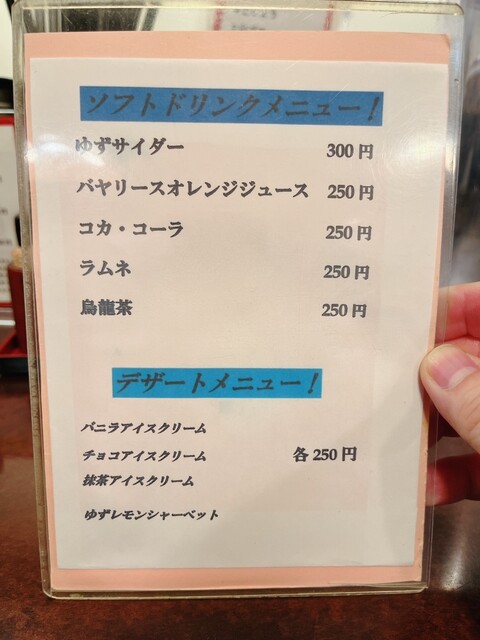 ソフトドリンクメニュー！
ゆずサイダー 300円
バヤリースオレンジジュース 250円
コカ・コーラ 250円
ラムネ 250円
烏龍茶 250円
デザートメニュー！
バニラアイスクリーム
チョコアイスクリーム 各250円
抹茶アイスクリーム
ゆずレモンシャーベット